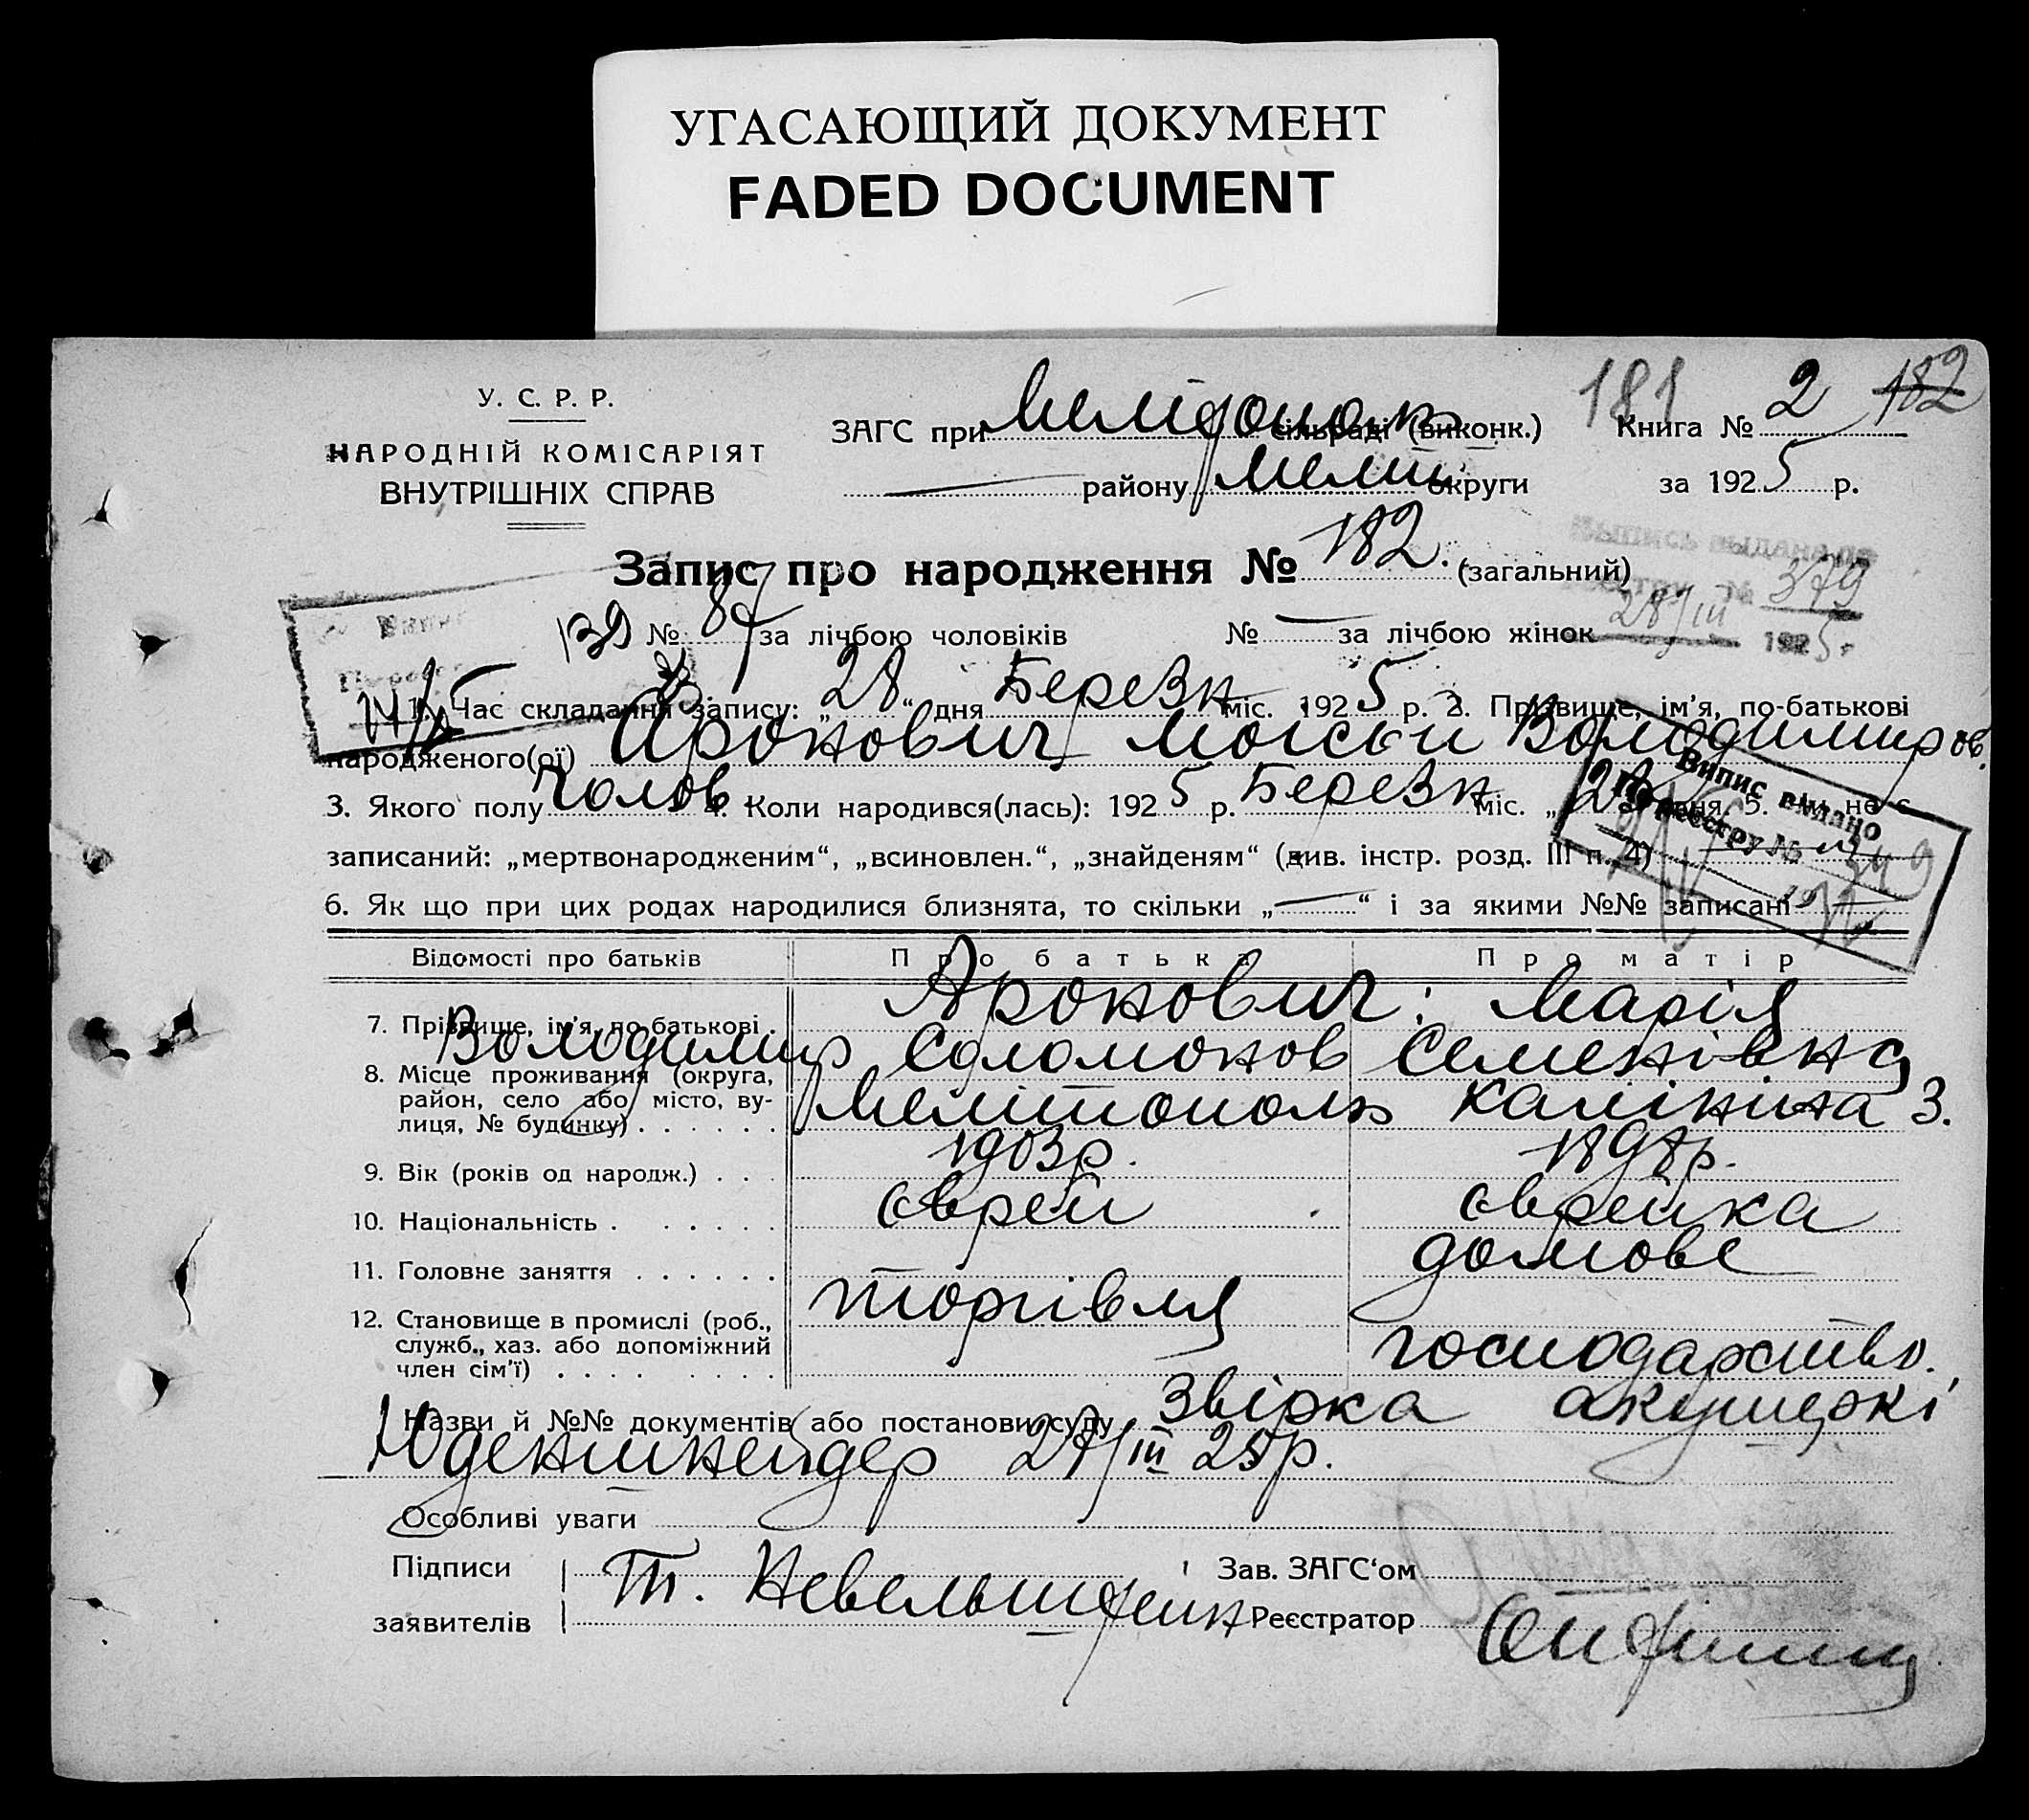 УГАСАЮЩИЙ ДОКУМЕНТ
FADED DOCUMENT
У. С. Р. Р.
НАРОДНІЙ КОМІСАРІЯТ
ВНУТРІШНІХ СПРАВ
ЗАГС при сільраді (виконк.)
181 Книга № 2 182
району Меліт. округи
за 1925 р.
Запис про народження № 182. (загальний)
Выпись выдана по
реестру № 379
28/III 1925 г
№ 87 за лічбою чоловіків № — за лічбою жінок
1. Час складання запису: „28“ дня Березн міс. 1925 р. 2. Прізвище, ім'я, по-батькові
народженого(ої) Аронович Моісей Володимиров.
3. Якого полу Чолов. 4. Коли народився(лась): 1925 р. Березн міс. „ дня. 5. Чи не є
Випис видано
По реєстру №
записаний: „мертвонародженим“, „всиновлен.“, „знайденям“ (див. інстр. розд. III п. 4)
6. Як що при цих родах народилися близнята, то скільки „—“ і за якими №№ записані
Відомості про батьків Про батька Про матір
7. Прізвище, ім'я, по-батькові . Аронович: Марія
Володимир Соломонов Семенівна
8. Місце проживання (округа,
район, село або місто, ву-
лиця, № будинку) . . . . . . Мелітополь Калініна 3.
9. Вік (років од народж.) . . . 1903р. 1898р.
10. Національність . . . . . . Єврей Єврейка
11. Головне заняття . . . . . . торгівля домове
12. Становище в промислі (роб.,
служб., хаз. або допоміжний
член сім'ї) . . . . . . . . господарство.
Назви й №№ документів або постанови суду Звірка акушеркі
Юденшнейдер 27/III 25р.
Особливі уваги
Підписи
заявителів
Т. Невельштейн
Зав. ЗАГС'ом
Реєстратор